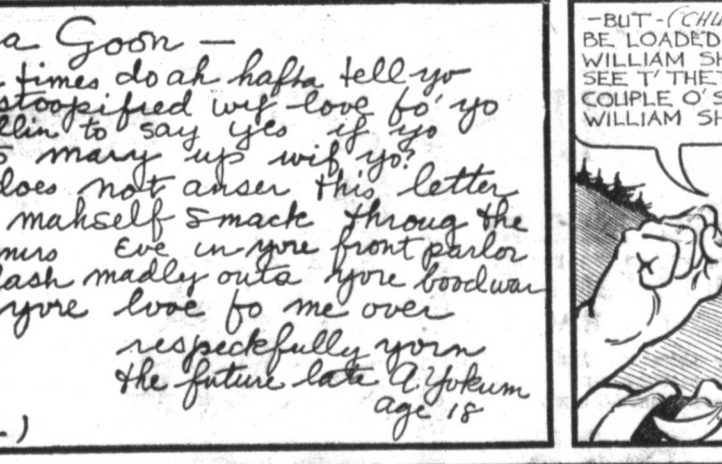 a Goon —
times do ah hafta tell yo
stoopified wif love fo' yo
llin to say yes if yo
mary up wif yo?
does not anser this letter
mahself smack throug the
mus Eve in yore front parlor
lash madly outa yore boodwar
yore love fo me over
respeckfully yorn
the future late A. Yokum
age 18
.)
-BUT-(CHU
BE LOADED
WILLIAM SH
SEE T' THET
COUPLE O' S
WILLIAM SH